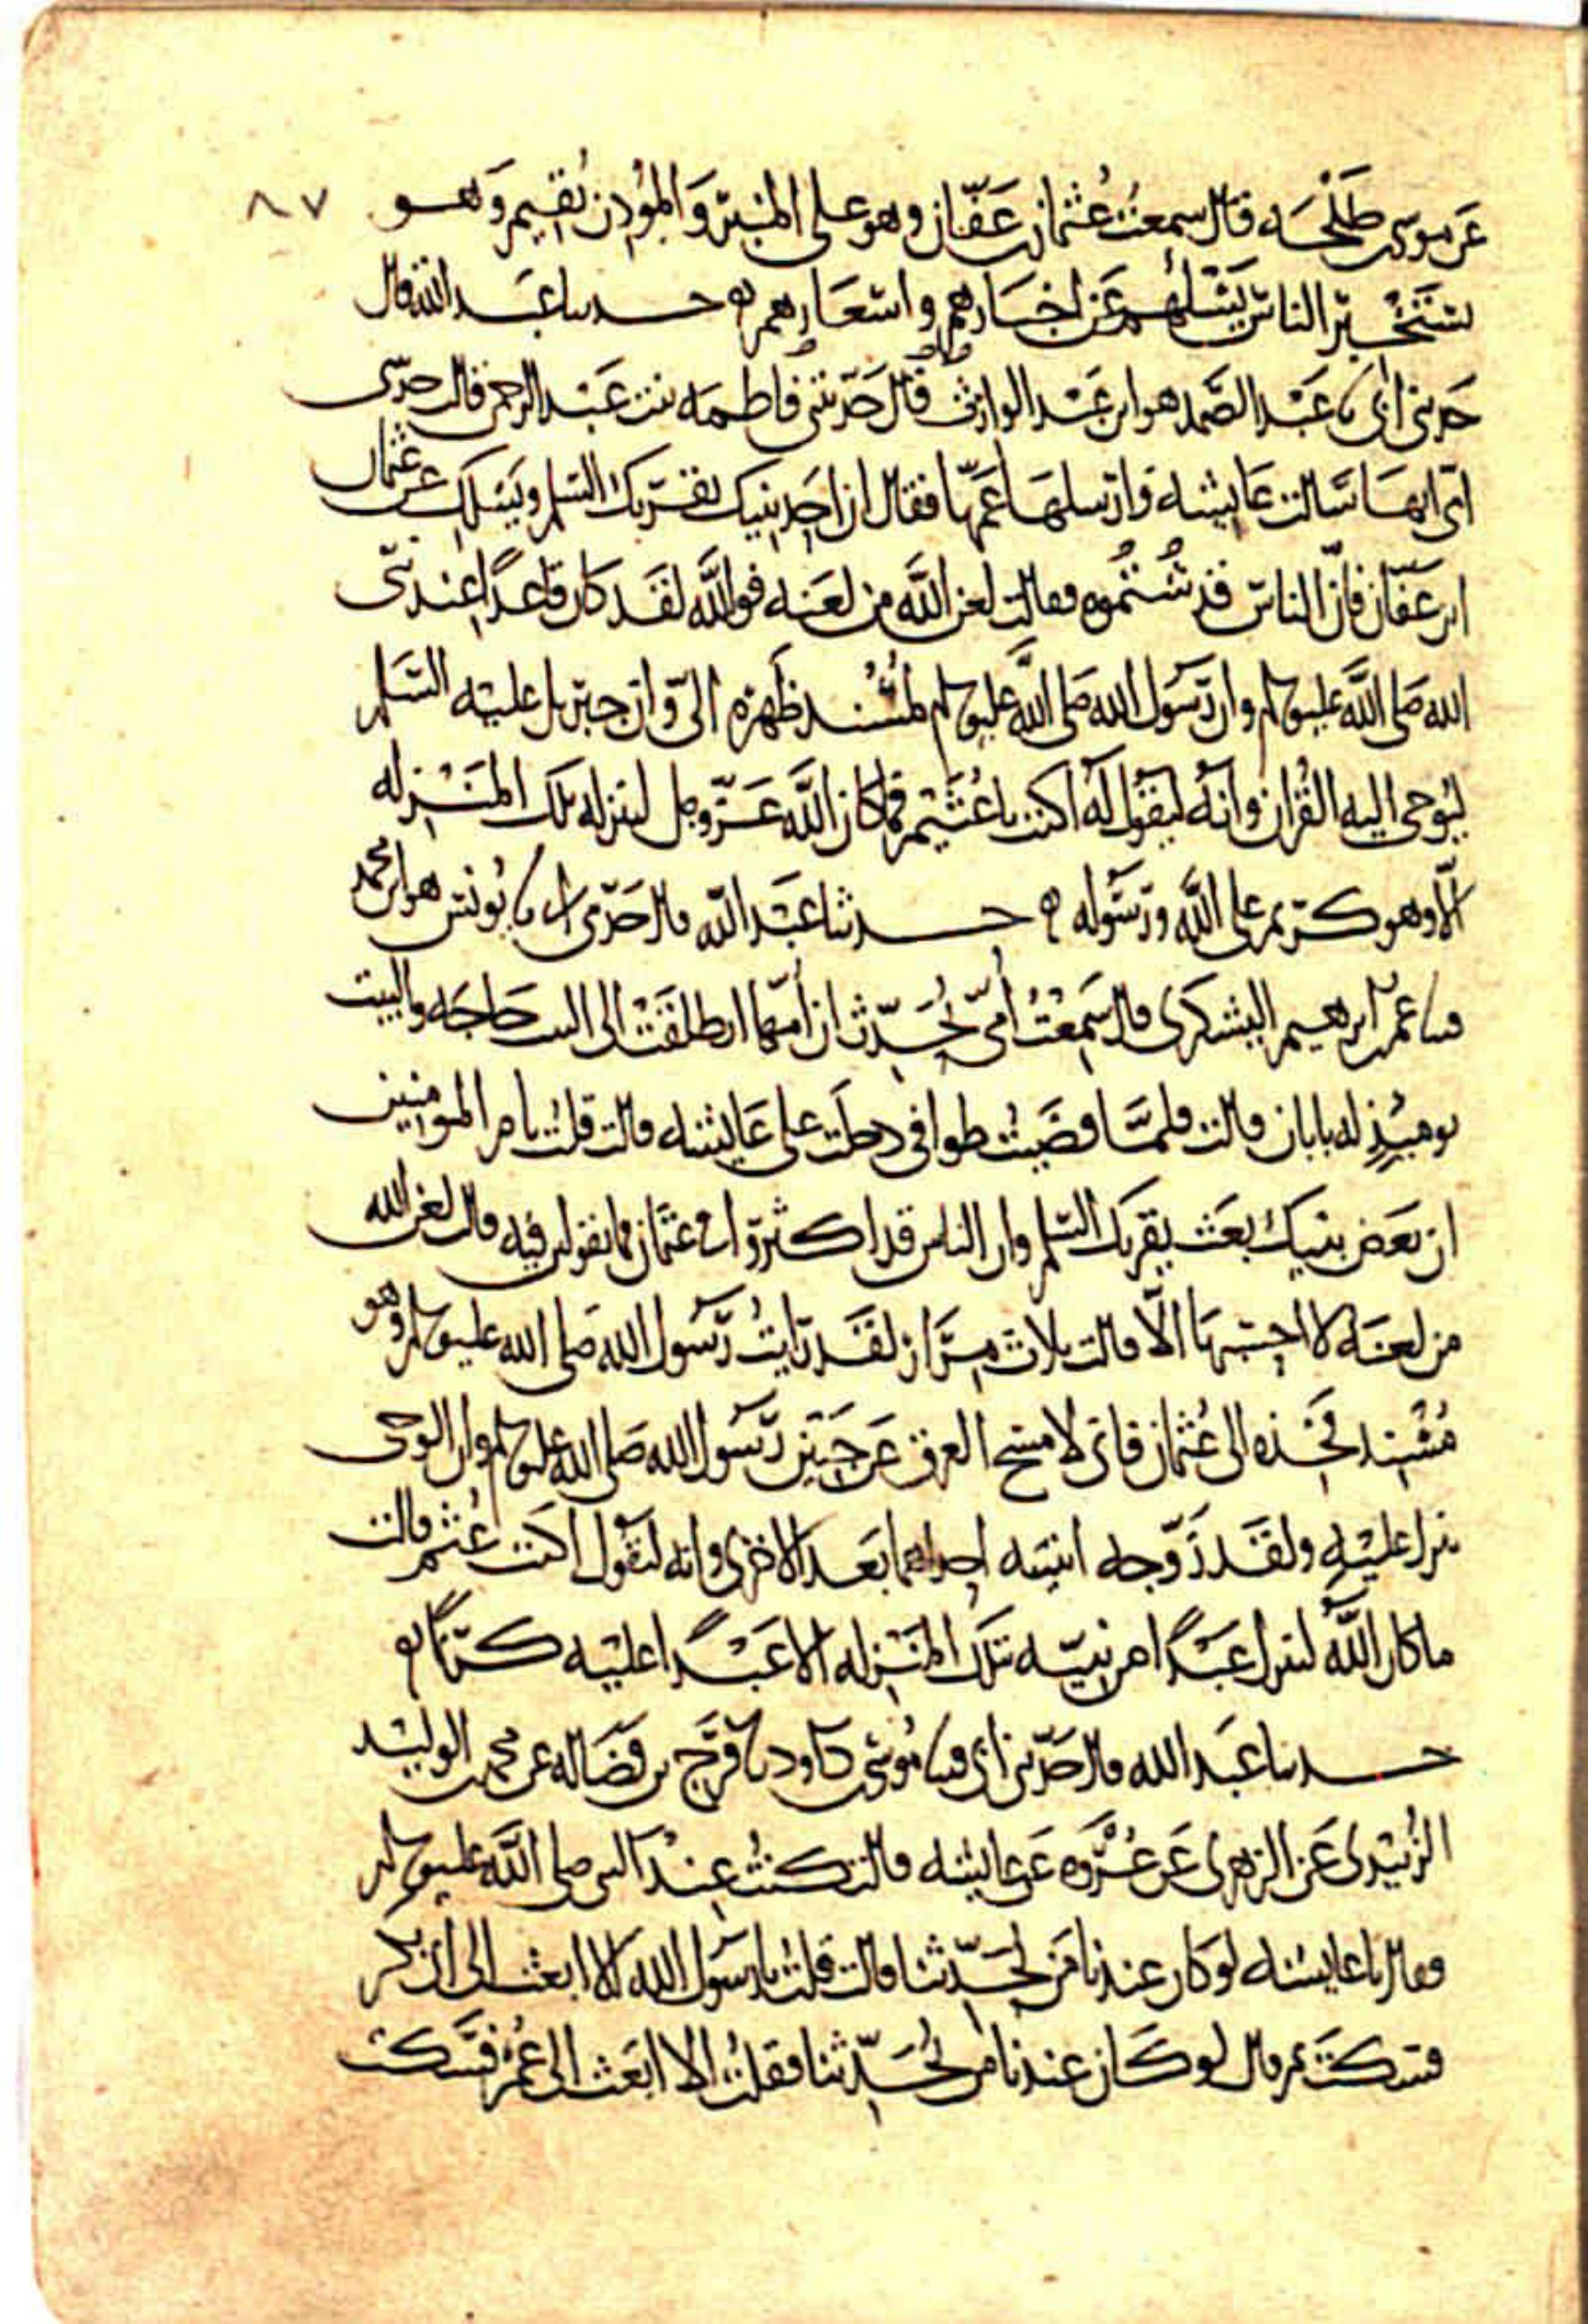 عن موسى بن طلحه قال سمعت عثمان بن عفان وهو على المنبر والمؤذن يقيم وهو ٨٧
يستخبر الناس يسئلهم عن اخبارهم واسعارهم ه حدثنا عبد الله قال
حدثني ابي نا عبد الصمد هو ابن عبد الوارث قال حدثتني فاطمه بنت عبد الرحمن قالت حدثتني
امي انها سالت عايشه وارسلها عمها فقال ان احد بنيك يقريك السلم ويسلك عن عثمان
ابن عفان فان الناس قد شتموه فقالت لعن الله من لعنه فوالله لقد كان قاعدا عند نبي
الله صلى الله عليه وسلم وان رسول الله صلى الله عليه وسلم لمسند ظهره الي وان جبريل عليه السلم
ليوحي اليه القران وانه ليقول له اكتب يا عثيم فما كان الله عز وجل لينزله تلك المنزله
الا وهو كريم على الله ورسوله ه حدثنا عبد الله قال حدثني ابي نا يونس هو ابن محمد
قثنا عمر بن ابرهيم اليشكري قال سمعت امي تحدث ان امها انطلقت الى البيت حاجه والبيت
يوميذ له بابان قالت فلما قضيت طوافي دخلت على عايشه قالت قلت يا ام المومنين
ان بعض بنيك بعث يقريك السلم وان الناس قد اكثروا في عثمان فما تقولين فيه قالت لعن الله
من لعنه لا احسبها الا قالت ثلاث مرار لقد رايت رسول الله صلى الله عليه وسلم وهو
مسند فخذه الى عثمان فاني لامسح العرق عن جبين رسول الله صلى الله عليه وسلم وان الوحي
ينزل عليه ولقد زوجه ابنتيه احداهما بعد الاخرى وانه ليقول اكتب عثيم قالت
ما كان الله لينزل عبدا من نبيه تلك المنزله الا عبدا عليه كريما ه
حدثنا عبد الله قال حدثني ابي قثنا موسى بن داود نا فرج بن فضاله عن محمد بن الوليد
الزبيدي عن الزهري عن عروه عن عايشه قالت كنت عند النبي صلى الله عليه وسلم
فقال يا عايشه لو كان عندنا من يحدثنا قالت قلت يا رسول الله الا ابعث الى ابي بكر
فسكت ثم قال لو كان عندنا من يحدثنا فقلت الا ابعث الى عمر فسكت